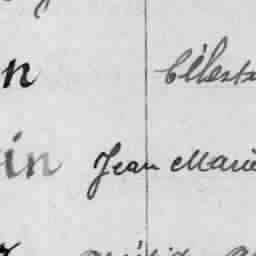 n Célest
in Jean Marie